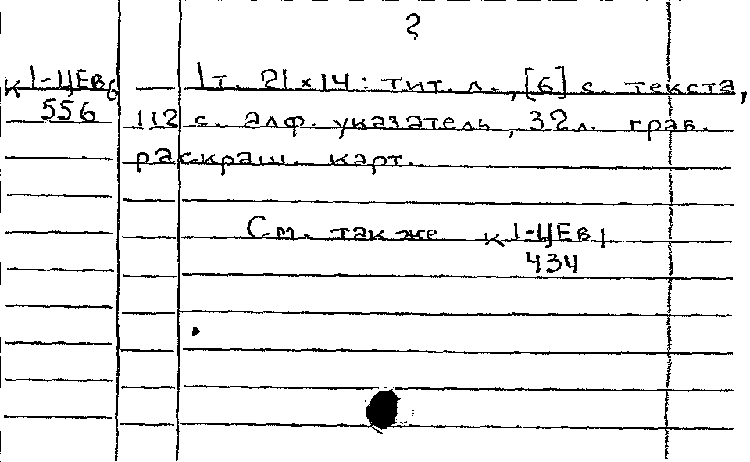 2
К 1-ЦЕв6
556
1 т. 21×14: тит. л., [6] с. текста,
112 с. алф. указатель, 32 л. грав.
раскраш. карт.
См. также К 1-ЦЕв1
434